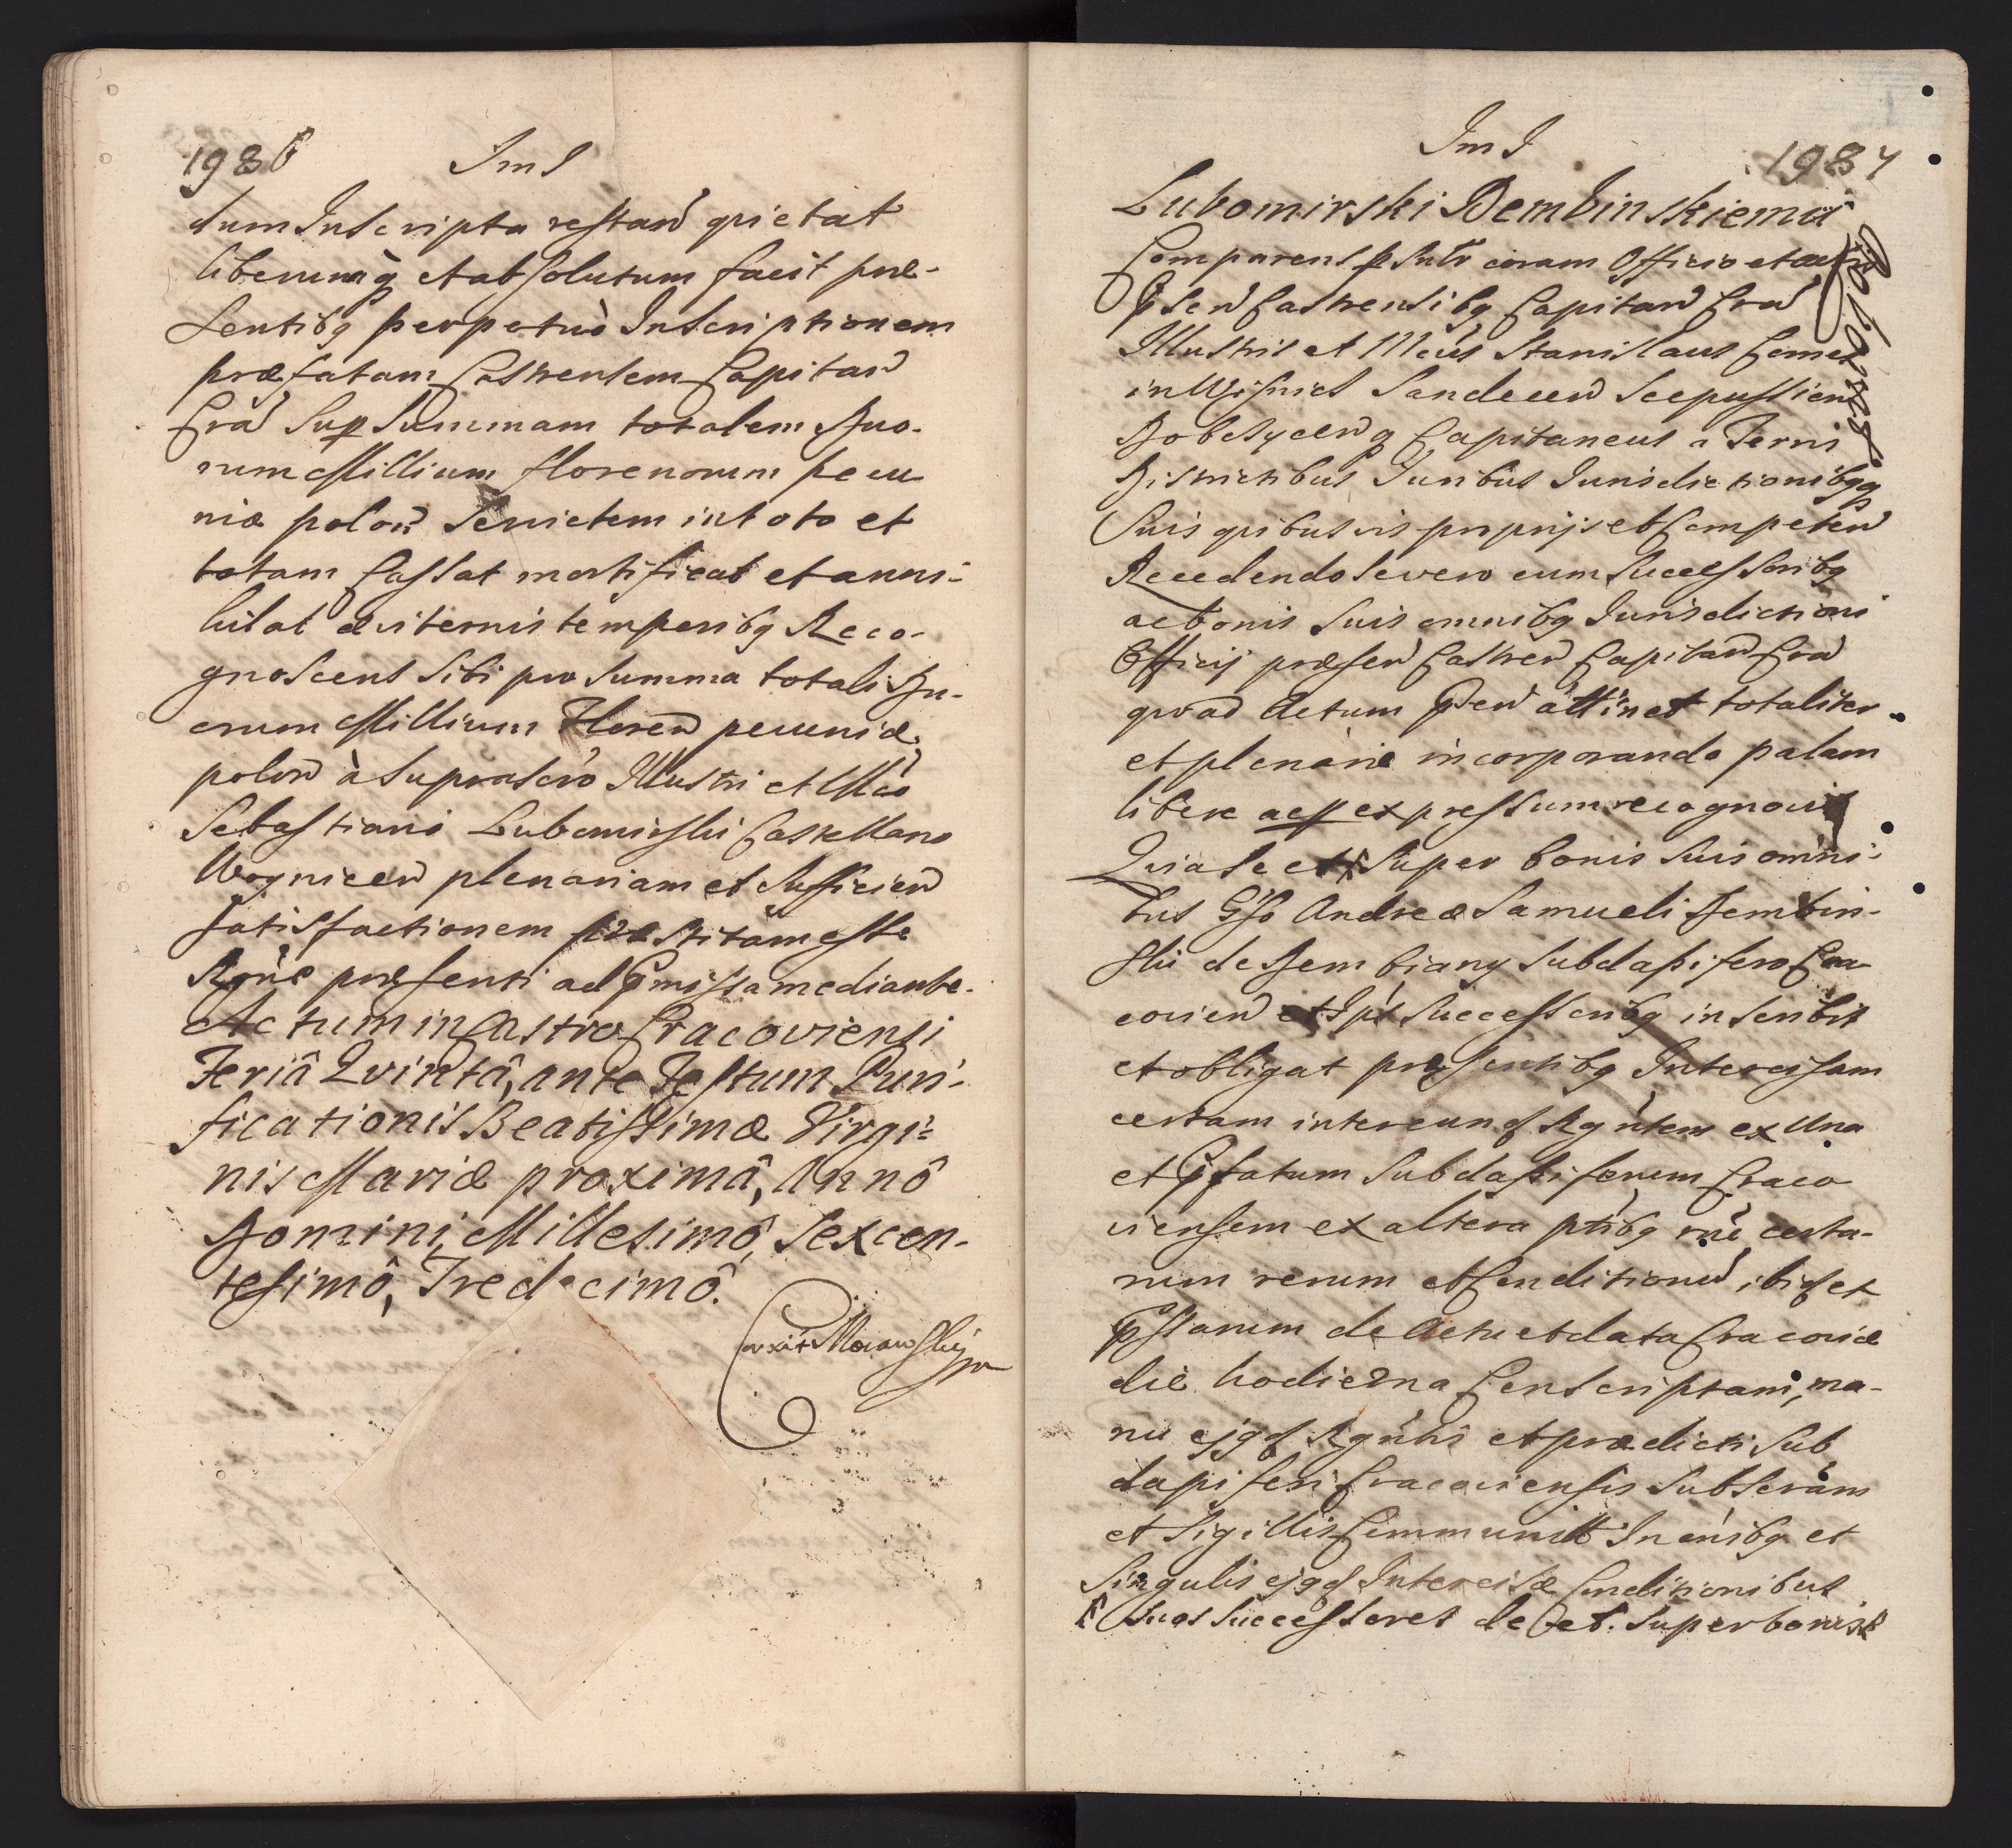 1986
Im I
dum Inscripto restand quietat
liberumq et absolutum facit præ-
sentibq perpetuò Inscriptionem
præfatam Castrensem Capitan
Cra Sup Summam totalem Duo-
rum Millium florenorum pecu
niæ polon Servietem in toto et
totam Cassat mortificat et anni-
hilat æviternis temporibq Reco-
gnoscens Sibi pro Summa totali Du-
orum Millium Floren pecuniæ
polon à Suprascro Illustri et Mco
Sebastiano Lubomirski Castellano
Woynicen plenariam et Sufficien
Satisfactionem præstitam esse
Rone præsenti ad pmissa mediante.
Actum in Castro Cracoviensi
Feriâ Qvintâ, ante Festum Puri-
ficationis Beatissimæ Virgi-
nis Mariæ proximâ, Annô
Domini Millesimô, Sexcen-
tesimô, Tredecimô.
Im I
1987
Lubomirski Dembinskiemu
Roboratio
Comparens psntr coram Officio et actis
psen Castrensibq Capitan Cra
Illustris et Mcus Stanislaus Comes
in Wisnics Sandecen Scepussien
Dobczycenq Capitaneus a Terris
Districtibus Juribus Jurisdictionibqq
Suis quibusvis proprijs et Competen
Recedendo Se vero cum Successoribq
ac bonis Suis omnibq Jurisdictioni
Officij præsen Castren Capitan Cra
quoad Actum psen attinet totaliter
et plenarie incorporando palam
libere acq expressum recognovit
Quia Se et Super bonis Suis omni-
bus Gso Andreæ Samueli Dembin-
ski de Dembiany Subdapifero Cra
covien et Ips Successoribq inscribit
et obligat præsentibq Intercisam
certam inter eund Rgntem ex Una
et pfatum Subdapiferum Craco
viensem ex altera ptibq rne certa-
rum rerum et Conditionu ibid ex
pssarum de Actu et data Cracoviæ
die hodierna Conscriptam, ma-
nu ejqd Rgntis et prædicti Sub
dapiferi Cracoviensis Subscram
et Sigillis Communit In onibq et
Singulis ejqd Intercisæ Conditionibus
Suos Successores de et Super bonis